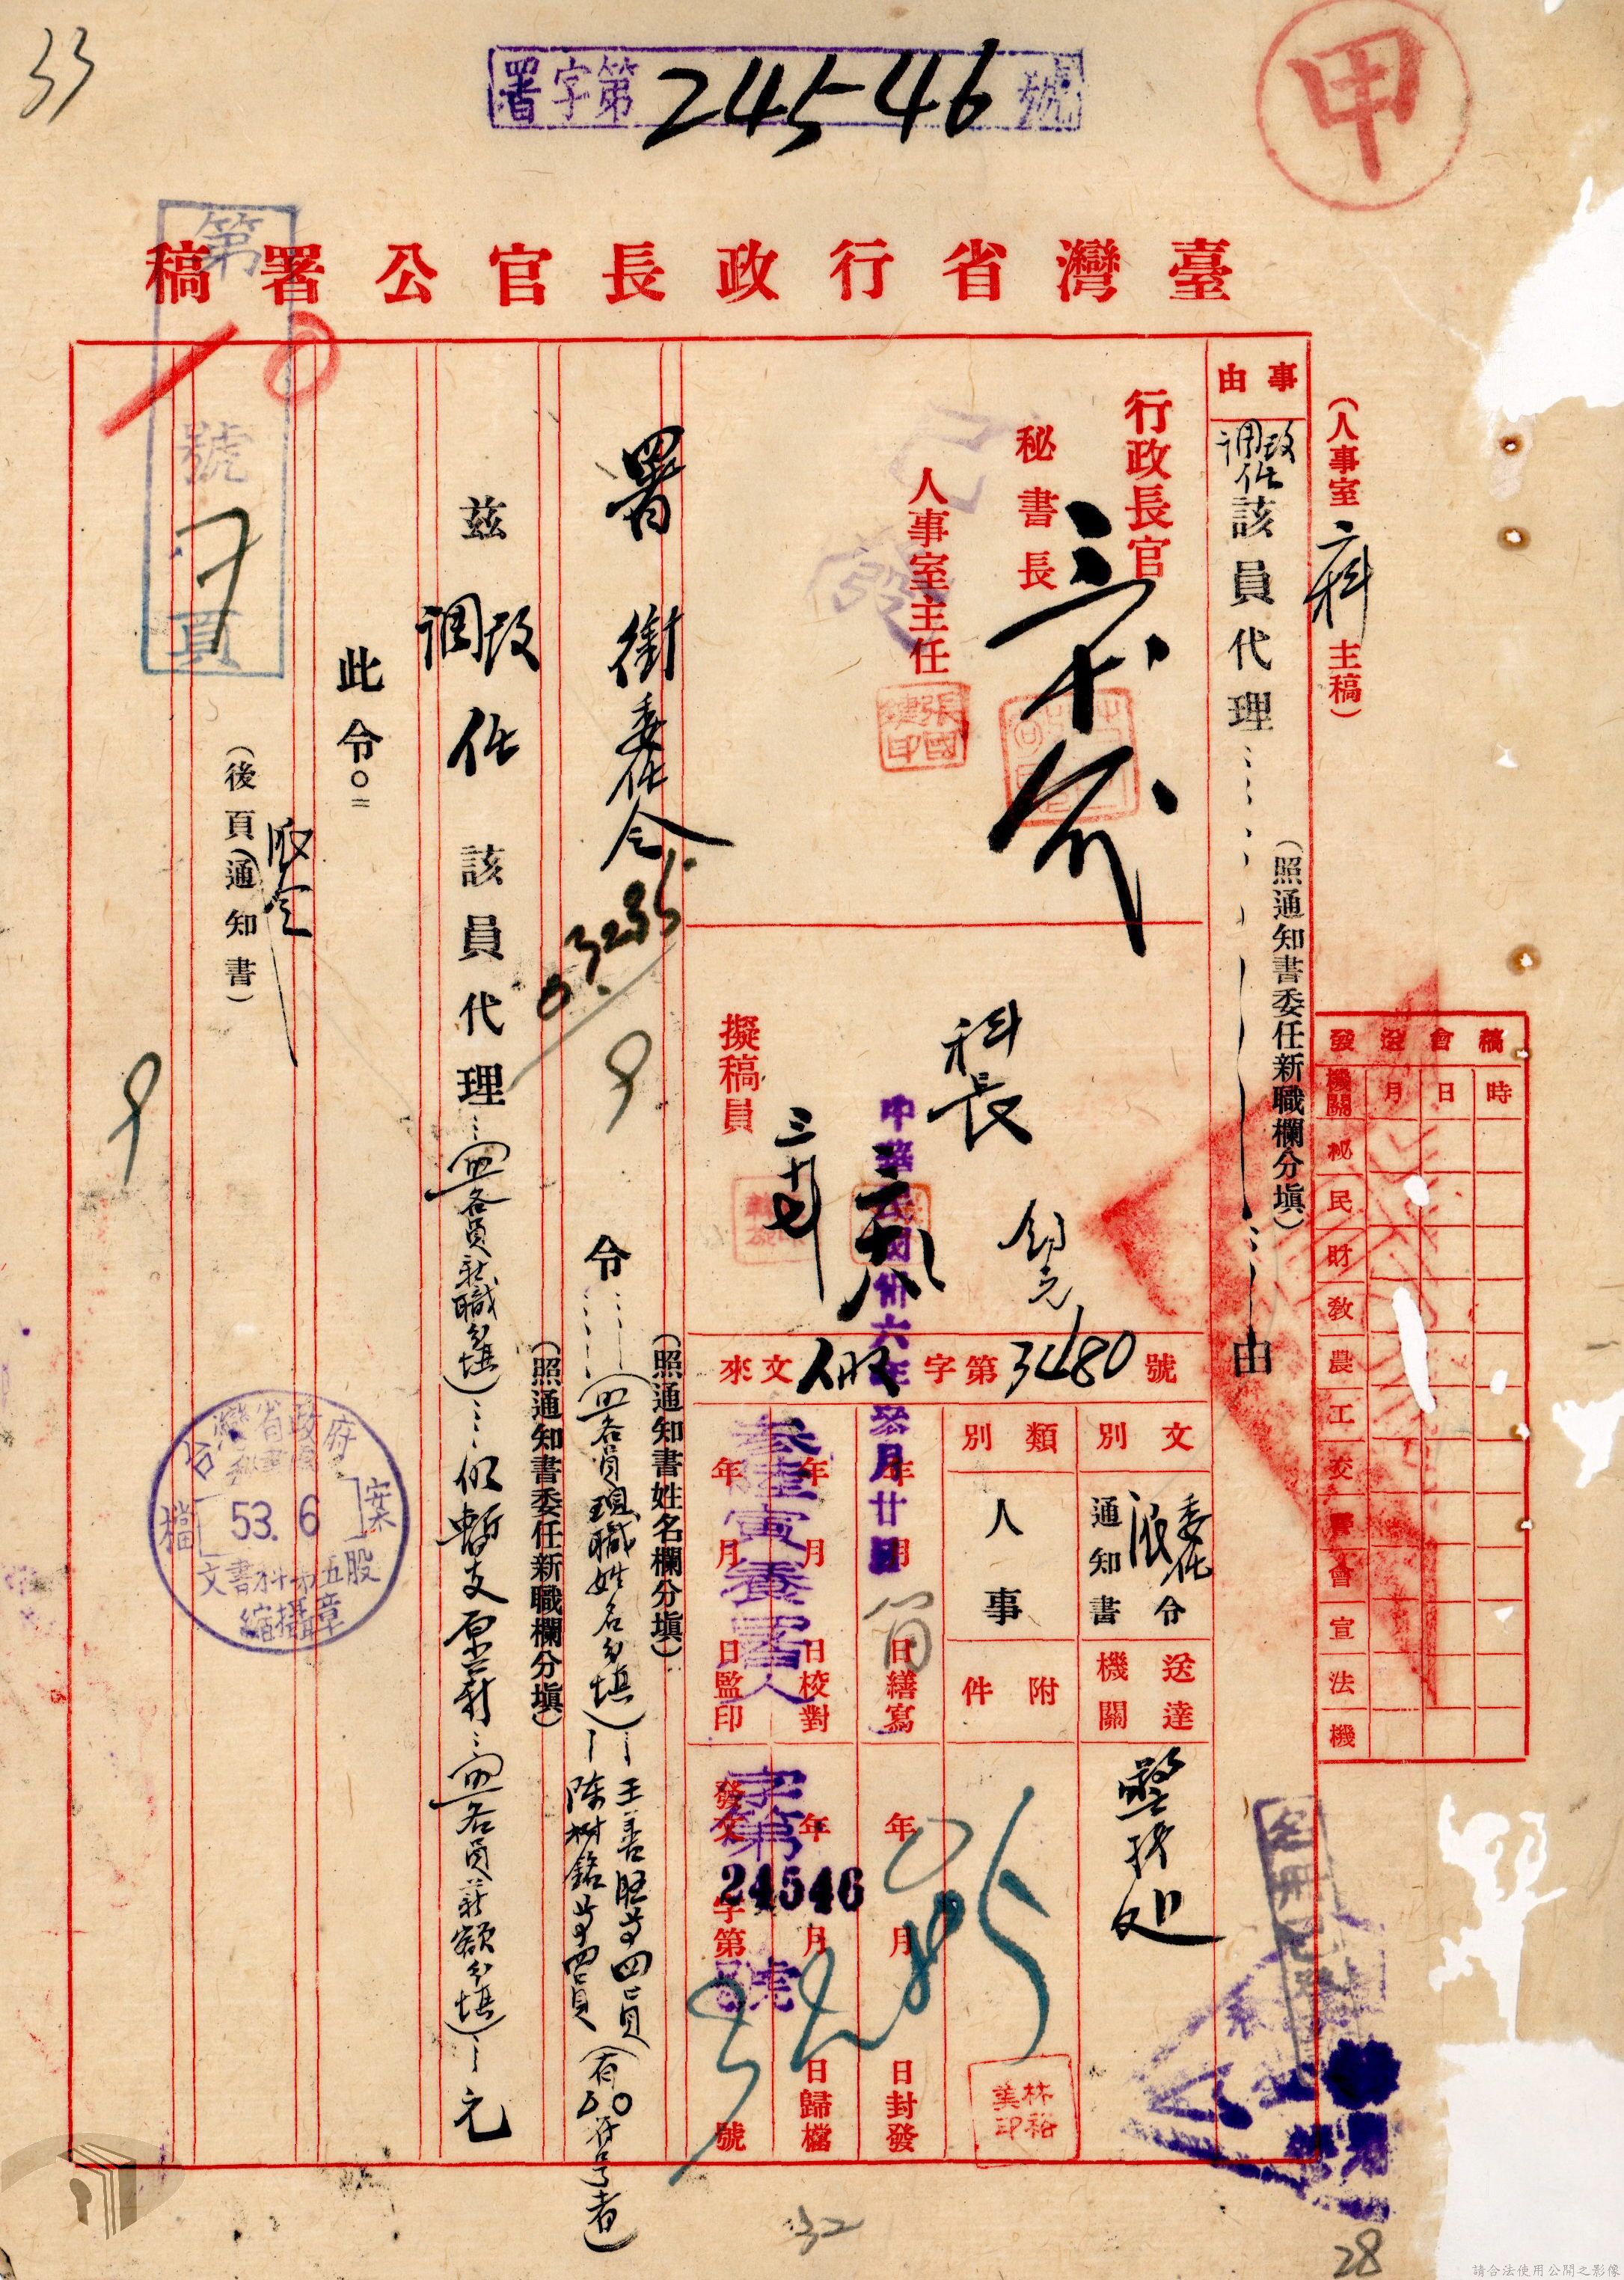 33
署字第24546號
甲
臺灣省行政長官公署稿
（人事室二科主稿）
事由
調改任該員代理……由
（照通知書委任新職欄分填）
行政長官
秘書長
人事室主任
張國鍵印
科長
擬稿員
來文人 字第3480號
文別
委任令
通知書
類別
人事
送達機關
警務処
附件
中華民國卅六年叁月廿日
年月日繕寫
年月日校對
年月日監印
年月日封發
年月日歸檔
發文 字第 號
叁陸寅養署人
字第24546號
林裕美印
署銜委任令
03235
令……（四各員現職姓名分填）
（照通知書姓名欄分填）
王善旺等四員
陈樹銘等四員
（有△○符号者）
茲調改任該員代理……（四各員新職分填）……仍暫支原薪……（四各員薪額分填）……元
（照通知書委任新職欄分填）
此令。
（後頁通知書）
第 號 頁
7
台灣省政府
秘書處
檔案
53. 6
文書科第五股
縮攝章
發送會稿
機關 月 日 時
秘
民
財
教
農
工
交
警
會
宣
法
機
32
28
請合法使用公開之影像